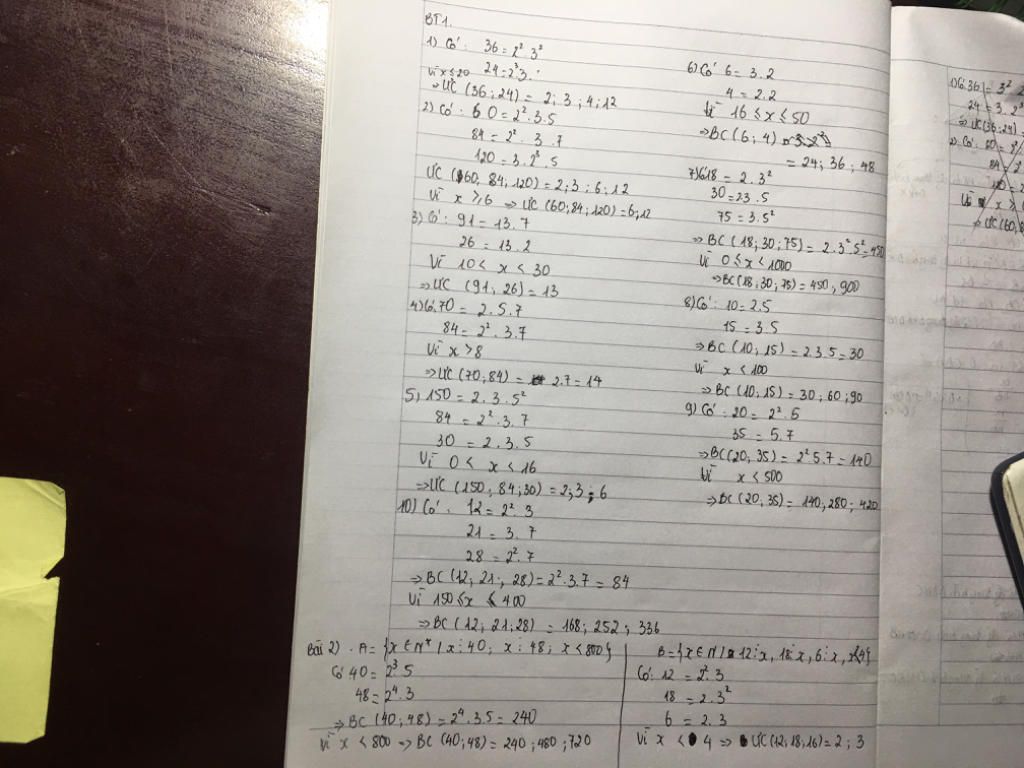 BT1.
1) Có: 36 = 2². 3²
24 = 2³3.
Vì x ≤ 20
⇒ ƯC (36; 24) = 2; 3; 4; 12
2) Có: 60 = 2². 3.5
84 = 2². 3.7
120 = 3.2³.5
ƯC (60, 84, 120) = 2; 3; 6; 12
Vì x ⩾ 6 ⇒ ƯC (60; 84; 120) = 6; 12
3) Có: 91 = 13.7
26 = 13.2
Vì 10 < x < 30
⇒ ƯC (91, 26) = 13
4) Có 70 = 2.5.7
84 = 2². 3.7
Vì x > 8
⇒ ƯC (70; 84) = 2.7 = 14
5, 150 = 2.3.5²
84 = 2². 3.7
30 = 2.3.5
Vì 0 < x < 16
⇒ ƯC (150; 84; 30) = 2; 3; 6
10) Có: 12 = 2². 3
21 = 3.7
28 = 2². 7
⇒ BC (12; 21; 28) = 2². 3.7 = 84
Vì 150 ≤ x ⩽ 400
⇒ BC (12; 21; 28) = 168; 252; 336
6) Có 6 = 3.2
4 = 2.2
Vì 16 ≤ x ≤ 50
⇒ BC (6; 4)
= 24; 36; 48
7) Có 18 = 2.3²
30 = 23.5
75 = 3.5²
⇒ BC (18; 30; 75) = 2.3².5² = 450
Vì 0 ≤ x < 1000
⇒ BC (18; 30; 75) = 450, 900
8) Có: 10 = 2.5
15 = 3.5
⇒ BC (10; 15) = 2.3.5 = 30
Vì x < 100
⇒ BC (10; 15) = 30; 60; 90
9) Có: 20 = 2². 5
35 = 5.7
⇒ BC (20, 35) = 2² 5.7 = 140
Vì x < 500
⇒ BC (20, 35) = 140, 280; 420
Bài 2). A = {x ∈ N* / x ⋮ 40, x ⋮ 48; x < 800}
Có 40 = 2³. 5
48 = 2⁴. 3
⇒ BC (40; 48) = 2⁴. 3.5 = 240
Vì x < 800 ⇒ BC (40; 48) = 240; 480; 720
B = {x ∈ N / 12 ⋮ x, 18 ⋮ x, 6 ⋮ x, x < 4}
Có: 12 = 2². 3
18 = 2.3²
6 = 2.3
Vì x < 4 ⇒ ƯC (12; 18; 16) = 2; 3
1) Có 36 = 3²
24 = 3.2³
⇒ ƯC (36; 24)
2) Có: 60 =
84
120 =
Vì x ⩾
⇒ ƯC (60; 8